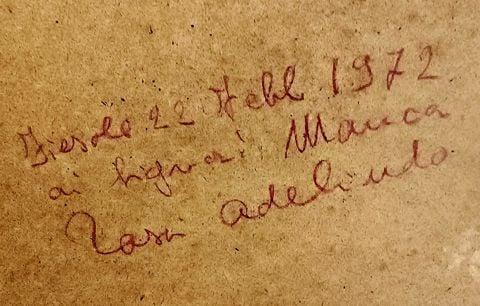 Fiesole 22 Febb 1972
ai Signori Manca
Tasi Adelindo